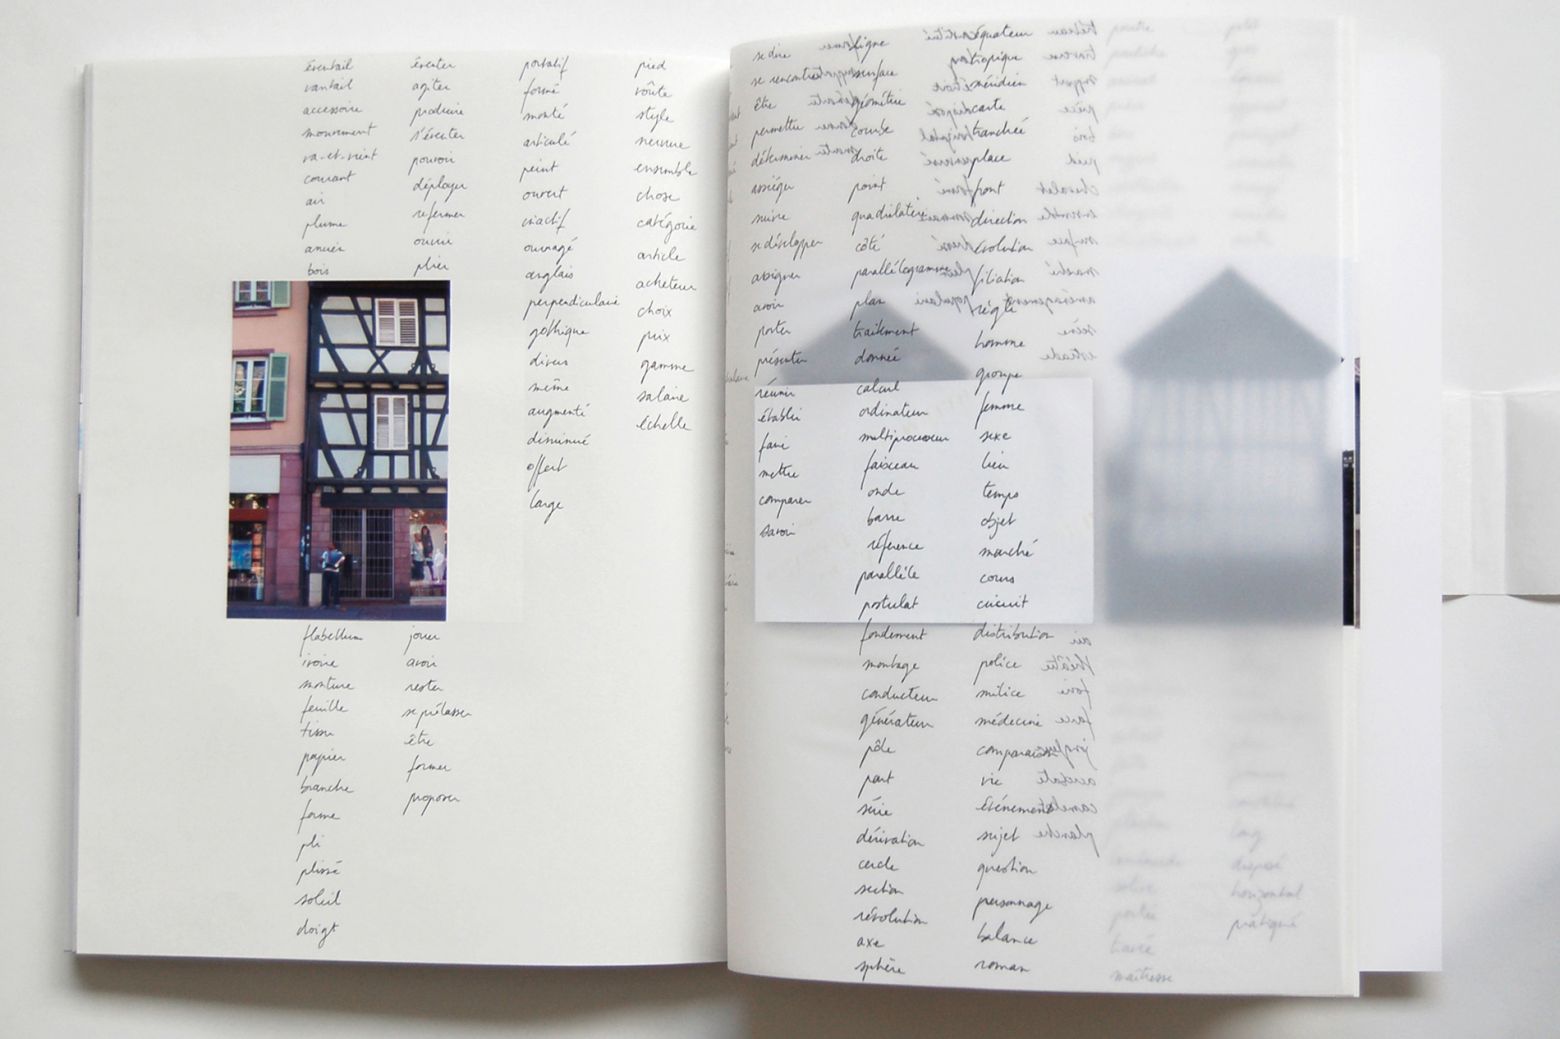 éventail
vantail
accessoire
mouvement
va-et-vient
courant
air
plume
bois
flabellum
ivoire
monture
feuille
tissu
papier
branche
forme
pli
plissé
soleil
doigt
éventer
agiter
produire
s'éventer
pouvoir
déployer
refermer
ouvrir
plier
jouer
avoir
rester
se prélasser
être
former
proposer
portatif
formé
monté
articulé
peint
ouvert
inactif
ouvragé
anglais
perpendiculaire
gothique
divers
même
augmenté
diminué
offert
large
pied
voûte
style
nervure
ensemble
chose
catégorie
article
acheteur
choix
prix
gamme
salaire
échelle
se dire
se rencontrer
être
permettre
déterminer
assiéger
suivre
se développer
assigner
avoir
porter
présenter
réunir
établir
faire
mettre
comparer
savoir
ligne
surface
géométrie
courbe
droite
point
quadrilatère
côté
parallélogramme
plan
traitement
donnée
calcul
ordinateur
multiprocesseur
faisceau
onde
barre
référence
parallèle
postulat
fondement
montage
conducteur
générateur
pôle
part
série
dérivation
cercle
section
révolution
axe
sphère
équateur
tropique
méridien
carte
tranchée
place
front
direction
évolution
filiation
règle
homme
groupe
femme
sexe
lieu
temps
objet
marché
cours
circuit
distribution
police
milice
médecine
comparaison
vie
événement
sujet
question
personnage
balance
roman
solive
portée
travée
maîtresse
long
disposé
horizontal
pratiqué